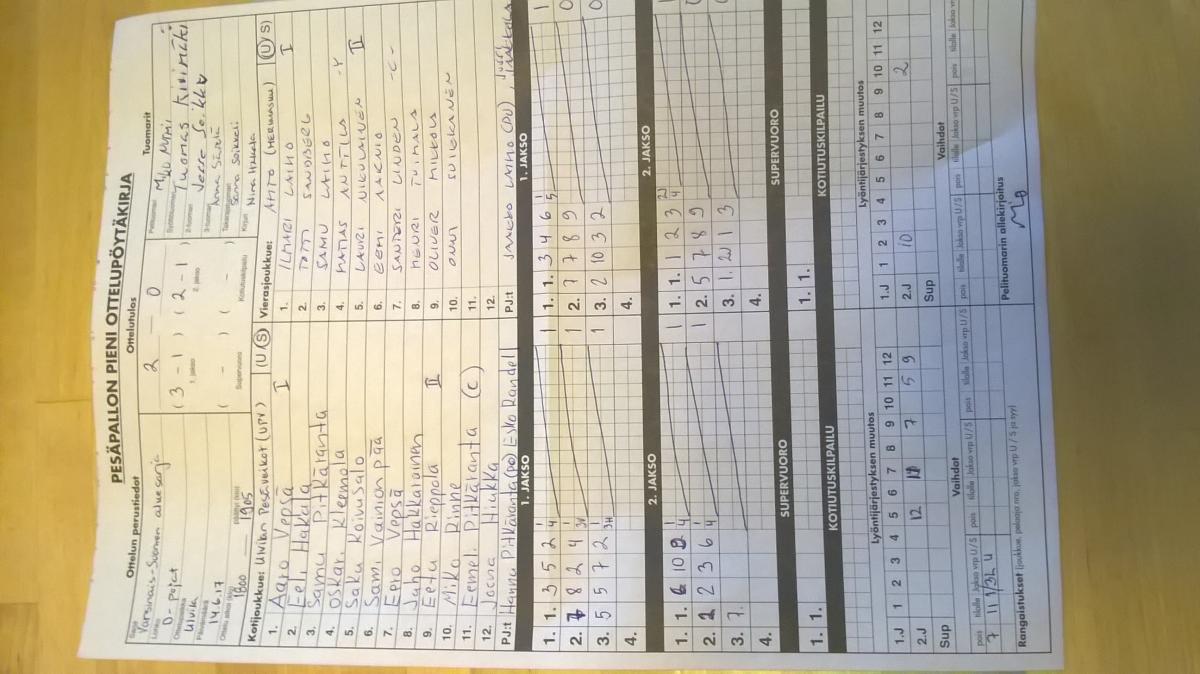 PESÄPALLON PIENI OTTELUPÖYTÄKIRJA
Ottelun perustiedot
Ottelutulos
Tuomarit
Sarja
Varsinais-Suomen aluesarja
Lohko
D-pojat
Ottelupaikka
Ulvila
Päivämäärä
14.6.17
Ottelu alkoi (klo)
1800
päättyi (klo)
1905
2 — 0
( 3 - 1 ) ( 2 - 1 )
1. jakso
2. jakso
( - ) ( - )
Supervuoro
Kotiutuskilpailu
Pelituomari
Syöttötuomari
Tuomas Kivimäki
2-tuomari
Veera Seikka
3-tuomari
Anna Säntti
Takarajatuomari
Sanna Seikkeli
Kirjuri
Nina Hakkala
Kotijoukkue: Ulvilan Pesäveikot (UPV) (U/S)
1. Aaro Vepsä I
2. Eeli Hakala
3. Samu Pitkäranta
4. Oskari Kleemola
5. Saku Koivusalo
6. Sami Vainionpää
7. Eero Vepsä
8. Juho Hakkarainen
9. Eetu Rieppola II
10. Mika Rinne
11. Eemeli Pitkäranta (C)
12. Joona Hiukka
PJ:t Hannu Pitkäranta (PO) Esko Randell
Vierasjoukkue: AHTO (U/S)
1. ILMARI LAIHO I
2. TATU SANDBERG
3. SAMU LAIHO
4. MATIAS ANTTILA -Y
5. LAURI NIKULAINEN II
6. EEMI AARNIO
7. SANTERI LINDEN -C-
8. HENRI TUIMALA
9. OLIVER MIKKOLA
10. ONNI SUIKKANEN
11.
12.
PJ:t JAAKKO LAIHO (PJ)
1. JAKSO
1. JAKSO
1. 1. 3 5 2 4
2. 8 2 4
3. 5 5 7 2
4.
1 1. 1. 3 4 6 5
1 2. 7 7 8 9
1 3. 2 10 3 2
4.
2. JAKSO
2. JAKSO
1. 1. 6 10
2. 2 2 3 6
3. 7.
4.
1 1. 1. 1 2 3 4
1 2. 5 7 8 9
3. 1. 2 1 3
4.
SUPERVUORO
SUPERVUORO
1. 1.
1. 1.
KOTIUTUSKILPAILU
KOTIUTUSKILPAILU
Lyöntijärjestyksen muutos
Lyöntijärjestyksen muutos
1.J 1 2 3 4 5 6 7 8 9 10 11 12
2.J 12 7 5 9
Sup
1.J 1 2 3 4 5 6 7 8 9 10 11 12
2.J 10 2
Sup
Vaihdot
Vaihdot
pois tilalle Jakso vrp U/S pois tilalle Jakso vrp U/S pois tilalle Jakso vrp U/S
pois tilalle Jakso vrp U/S pois tilalle Jakso vrp U/S
7 11 1/3L U
Rangaistukset (joukkue, pelaaja nro, jakso vrp U / S ja syy)
Pelituomarin allekirjoitus